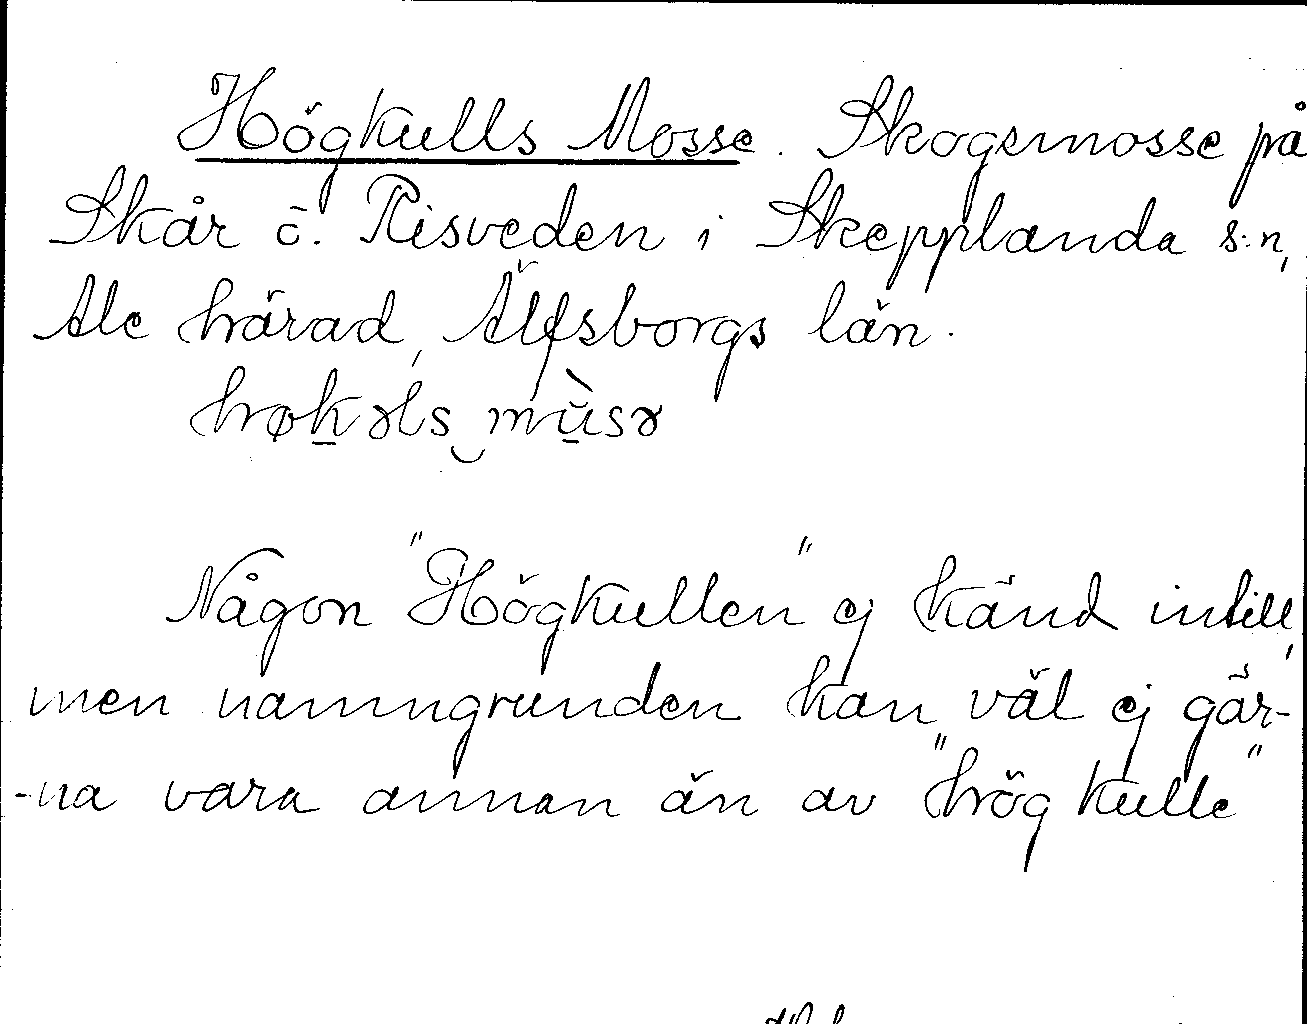 Högkulls Mosse. Skogsmosse på
Skår ö. Risveden i Skepplanda s:n,
Ale härad, Älfsborgs län.
Någon "Högkullen" ej känd intill,
men namngrunden kan väl ej gär-
-na vara annan än av "hög kulle"